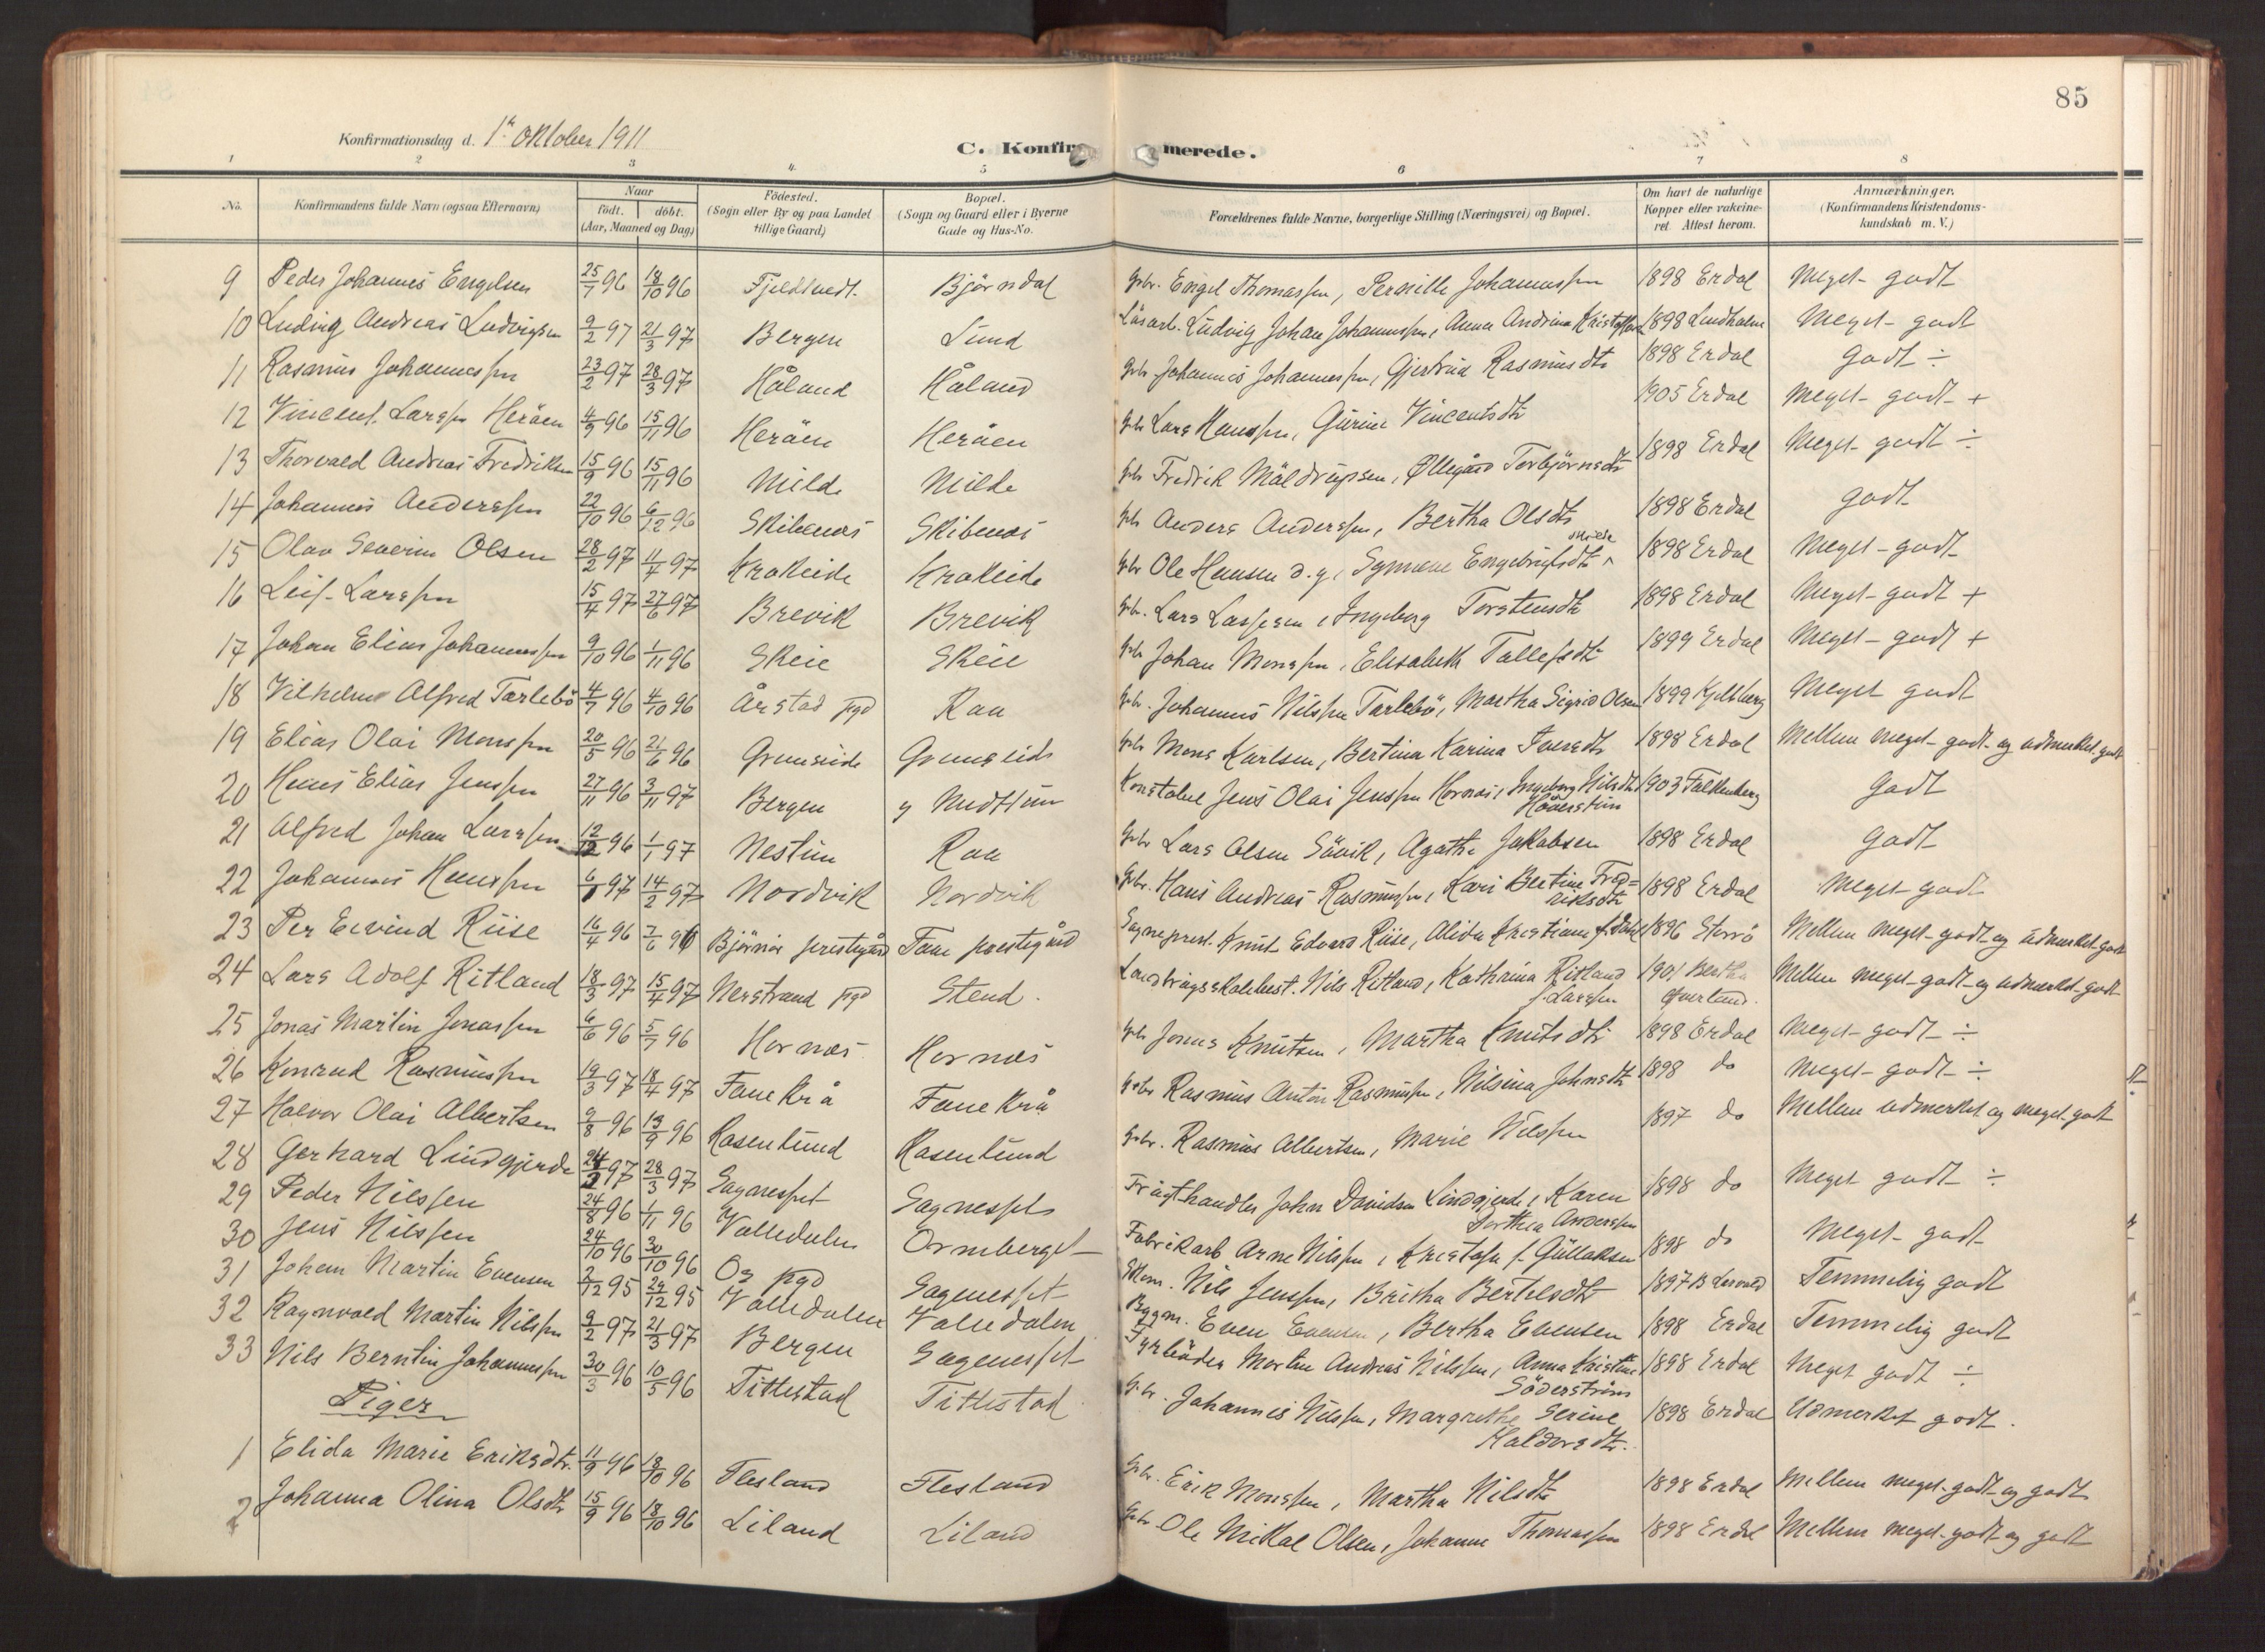 85
Konfirmationsdag d. 1ste Oktober 1911
C. Konfirmerede.
1 2 3 4 5 6 7 8
No. Konfirmandens fulde Navn (ogsaa Efternavn) Naar födt. döbt. (Aar, Maaned og Dag) Födested. (Sogn eller By og paa Landet tillige Gaard) Bopæl. (Sogn og Gaard eller i Byerne Gade og Hus-No. Forældrenes fulde Navne, borgerlige Stilling (Næringsvei) og Bopæl. Om havt de naturlige Kopper eller vakcineret. Attest herom. Anmærkninger. (Konfirmandens Kristendomskundskab m. V.)
9 Peder Johannes Engelsen 25/7 96 18/10 96 Fjeldtvedt Björndal Gbr. Engel Thomassen, Pernille Johannessen 1898 Erdal Meget godt
10 Ludvig Andreas Ludvigsen 9/2 97 21/3 97 Bergen Lund Ludvig Johan Johannessen, Anna Andrina 1898 Lindholm Meget godt
11 Rasmus Johannessen 23/2 97 28/3 97 Håland Håland Gbr. Johannes Johannessen, Gjertrud Rasmusdtr 1898 Erdal Godt ÷
12 Vincent Larssen Heröen 4/9 96 15/11 96 Heröen Heröen Gbr Lars Hanssen, Gurine Vincentsdtr 1905 Erdal Meget godt +
13 Thorvald Andreas Fredriksen 15/9 96 15/11 96 Milde Milde Gbr Fredrik Möldrupsen, Øllegård Torbjörnsdtr 1898 Erdal Meget godt ÷
14 Johannes Anderssen 22/10 96 6/12 96 Skibenæs Skibenæs Gbr Anders Anderssen, Bertha Olsdtr 1898 Erdal godt
15 Olav Severin Olsen 28/2 97 11/4 97 Krokeide Krokeide Gbr Ole Hansen d.y., Synneve Engebrigtsdtr 1898 Erdal Meget godt
16 Leif Larssen 15/4 97 27/6 97 Brevik Brevik Gbr. Lars Lassesen, Ingeborg Torstensdtr 1898 Erdal Meget godt +
17 Johan Elias Johannessen 9/10 96 1/11 96 Skeie Skeie Gbr Johan Monssen, Elisabeth Tollefsdtr 1899 Erdal Meget godt +
18 Vilhelm Alfred Tarlebö 4/7 96 4/10 96 Årstad pgd Raa Gbr. Johannes Nilssen Tarlebö, Martha Sigrid Olsen 1899 Meget godt
19 Elias Olai Monssen 20/5 96 21/6 96 Grimseide Grimseide Gbr Mons Karlsen, Bertina Karina Iversdtr 1898 Erdal Mellem meget godt og udmerket godt
20 Hans Elias Jenssen 27/11 96 3/11 97 Bergen y Midttun Konstabel Jens Olai Jenssen Hornæs, Ingeborg Nilsdtr 1903 Falkenberg Godt
21 Alfred Johan Larssen 12/12 96 1/1 97 Nestun Raa Gbr Lars Olsen Sövik, Agathe Jakobsen 1898 Erdal Godt
22 Johannes Hanssen 6/1 97 14/2 97 Nordvik Nordvik Gbr. Hans Andreas Rasmussen, Kari Bertine Fredriksdtr 1898 Erdal Meget godt
23 Per Eivind Riise 16/4 96 7/6 96 Björnör prestegård Fane prestegård Sogneprest Knut Edvard Riise, Alida Kristiane f. Dahl 1896 Storrö Mellem meget godt og udmerket godt
24 Lars Adolf Ritland 18/3 97 15/4 97 Nerstrand pgd Stend Landbrugsskolebest. Nils Ritland, Kathrina Ritland f. Larssen 1901 Bertha Øverland Mellem meget godt og udmerket godt
25 Jonas Martin Jonassen 6/6 96 5/7 96 Hornæs Hornæs Gbr Jonas Knutsen, Martha Knutsdtr 1898 Erdal Meget godt ÷
26 Konrad Rasmussen 19/3 97 18/4 97 Fanekrå Fanekrå Gbr Rasmus Anton Rasmussen, Nilsina Johnsdtr 1898 do Meget godt ÷
27 Halvor Olai Albertsen 9/8 96 13/9 96 Rosenlund Rosenlund Gbr. Rasmus Albertsen, Marie Nilssen 1897 do Mellem udmerket og meget godt
28 Gerhard Lindgjerde 24/2 97 28/3 97 Sagnesset Sagnesset Frugthandler John Davidsen Lindgjerde, Karen Dorthea Anderssen 1898 do Meget godt ÷
29 Peder Nilssen 24/8 96 1/11 96 Valledalen Ormberget Fabrikarb Arne Nilssen, f. Gullaksen 1898 do Meget godt
30 Jens Nilssen 24/10 96 30/10 96 Os pgd Sagenesset Nils Jenssen, Britha Bertelsdtr 1897 Temmelig godt
31 Johan Martin Evensen 2/12 95 29/12 95 Valledalen Valledalen Bygm. Even Evensen, Bertha Evensen 1898 Erdal Temmelig godt
32 Ragnvald Martin Nilssen 9/2 97 21/3 97 Bergen Sagenesset Fyrböder Morten Andreas Nilssen, Anna Kristine Söderström 1898 Erdal Meget godt ÷
33 Nils Berntin Johannessen 30/3 96 10/5 96 Titlestad Titlestad Gbr. Johannes Nilssen, Margrethe Serine Haldorsdtr. 1898 Erdal Udmerket godt.
Piger
1 Elida Marie Eriksdtr. 11/9 96 18/10 96 Flesland Flesland Gbr. Erik Monssen, Martha Nilsdtr 1898 Erdal Mellem meget godt og godt
2 Johanna Olina Olsdtr 15/9 96 18/10 96 Liland Liland Gbr. Ole Mikal Olsen, Johanne Thomassen 1898 Erdal Mellem meget godt og godt